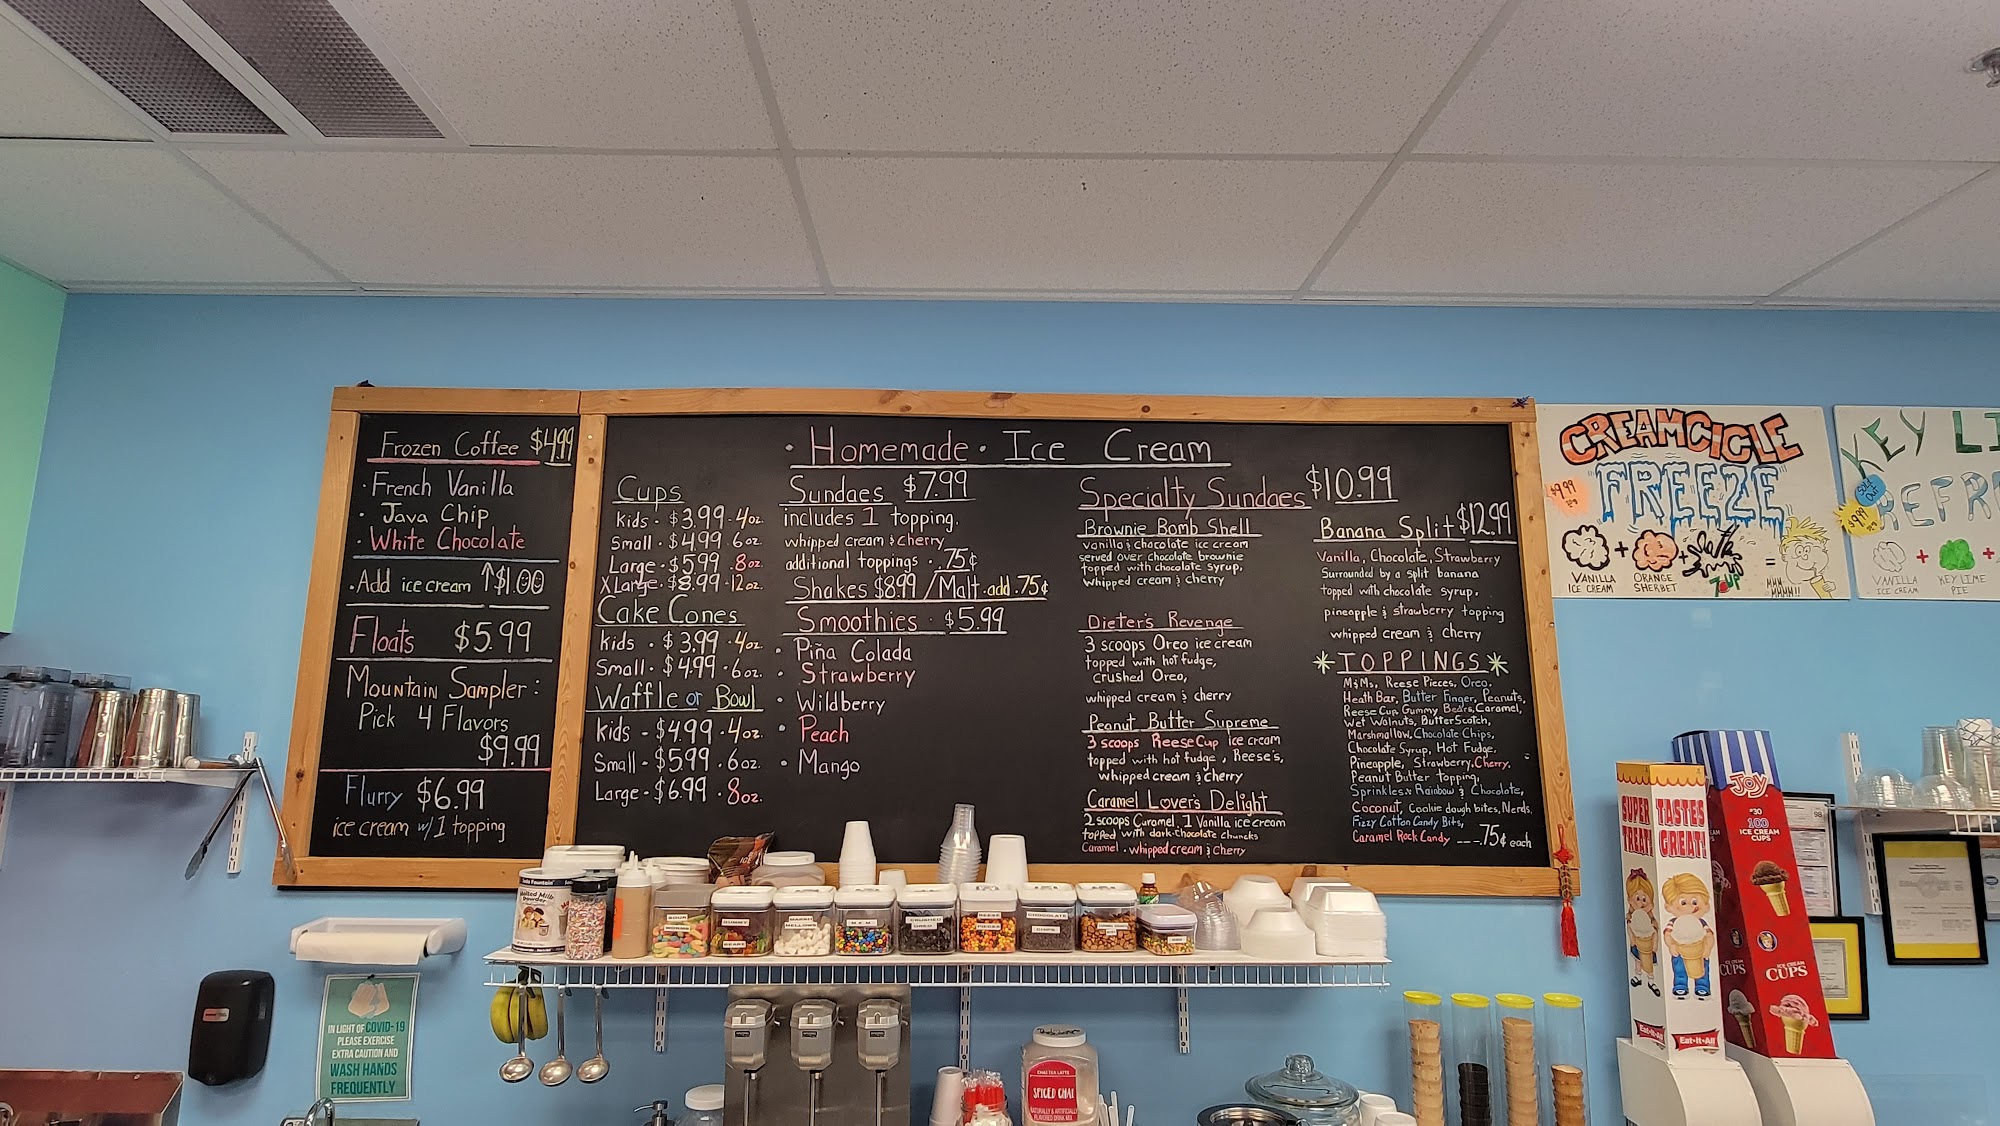 Frozen Coffee $4.99
· French Vanilla
· Java Chip
· White Chocolate
· Add ice cream ↑$1.00
Floats $5.99
Mountain Sampler:
Pick 4 Flavors
$9.99
Flurry $6.99
ice cream w/1 topping
· Homemade · Ice Cream
Cups
Kids · $3.99 · 4oz.
Small · $4.99 · 6oz.
Large · $5.99 · 8oz.
X Large · $8.99 · 12oz.
Cake Cones
Kids · $3.99 · 4oz.
Small · $4.99 · 6oz.
Waffle or Bowl
Kids · $4.99 · 4oz.
Small · $5.99 · 6oz.
Large · $6.99 · 8oz.
Sundaes $7.99
includes 1 topping.
whipped cream & cherry
additional toppings · .75¢
Shakes $8.99 / Malt · add .75¢
Smoothies · $5.99
· Piña Colada
· Strawberry
· Wildberry
· Peach
· Mango
Specialty Sundaes $10.99
Brownie Bomb Shell
Vanilla & chocolate ice cream
served over chocolate brownie
topped with chocolate syrup,
whipped cream & cherry
Dieter's Revenge
3 scoops Oreo ice cream
topped with hot fudge,
crushed Oreo,
whipped cream & cherry
Peanut Butter Supreme
3 scoops Reese Cup ice cream
topped with hot fudge, Reese's,
whipped cream & cherry
Caramel Lover's Delight
2 scoops Caramel, 1 Vanilla ice cream
topped with dark-chocolate chuncks
Caramel · whipped cream & cherry
Banana Split $12.99
Vanilla, Chocolate, Strawberry
Surrounded by a split banana
topped with chocolate syrup,
pineapple & strawberry topping
whipped cream & cherry
TOPPINGS
M&Ms, Reese Pieces, Oreo.
Heath Bar, Butter Finger, Peanuts,
Reese Cup, Gummy Bears, Caramel,
Wet Walnuts, ButterScotch,
Marshmallow, Chocolate Chips,
Chocolate Syrup, Hot Fudge,
Pineapple, Strawberry, Cherry,
Peanut Butter topping,
Sprinkles: Rainbow & Chocolate,
Coconut, Cookie dough bites, Nerds,
Fizzy Cotton Candy Bits,
Caramel Rock Candy --- .75¢ each
CREAMCICLE
FREEZE
$9.99
VANILLA
ICE CREAM
ORANGE
SHERBET
7UP
MMM
MMMM!!
KEY LI
REFR
SOLD
OUT
$9.99
VANILLA
ICE CREAM
KEY LIME
PIE
SUPER
TREAT!
TASTES
GREAT!
Eat-It-All
Eat-It-All
JOY
#30
100
ICE CREAM
CUPS
ICE CREAM
CUPS
ICE CREAM
CUPS
Malted Milk
Powder
SOUR
WORMS
GUMMY
BEARS
MARSH
MELLOWS
M&M
CRUSHED
OREO
REESE
PIECES
CHOCOLATE
CHIPS
IN LIGHT OF COVID-19
PLEASE EXERCISE
EXTRA CAUTION AND
WASH HANDS
FREQUENTLY
CHAI TEA LATTE
SPICED CHAI
NATURALLY & ARTIFICIALLY
FLAVORED DRINK MIX